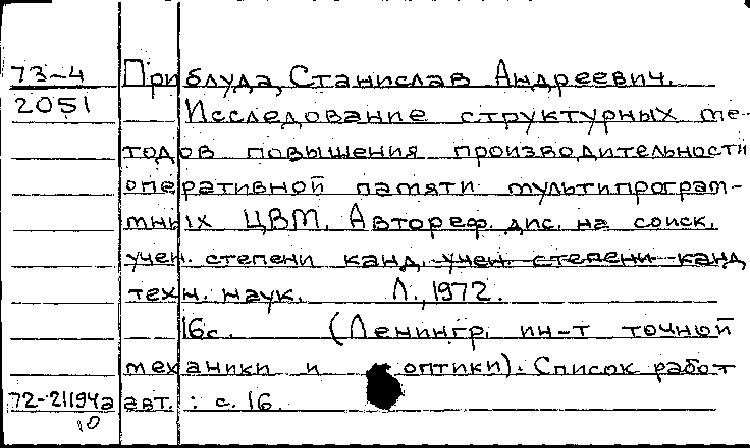 73-4 Приблуда, Станислав Андреевич.
2051 Исследование структурных ме-
тодов повышения производительности
оперативной памяти мультипрограм-
мных ЦВМ. Автореф. дис. на соиск.
учен. степени канд. учен. степени канд
техн. наук. Л., 1972.
16с. (Ленингр. ин-т точной
механики и оптики). Список работ
72-21194а авт.: с. 16.
10